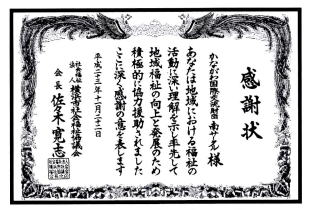 感謝状
かながわ国際交流財団南サークル 様
あなたは地域における福祉の
活動に深い理解を示し率先して
地域福祉の向上と発展のため
積極的に協力援助されました
ここに深く感謝の意を表します
平成二十三年十一月二十二日
社会福祉法人 横浜市社会福祉協議会
会長 佐々木 寛志